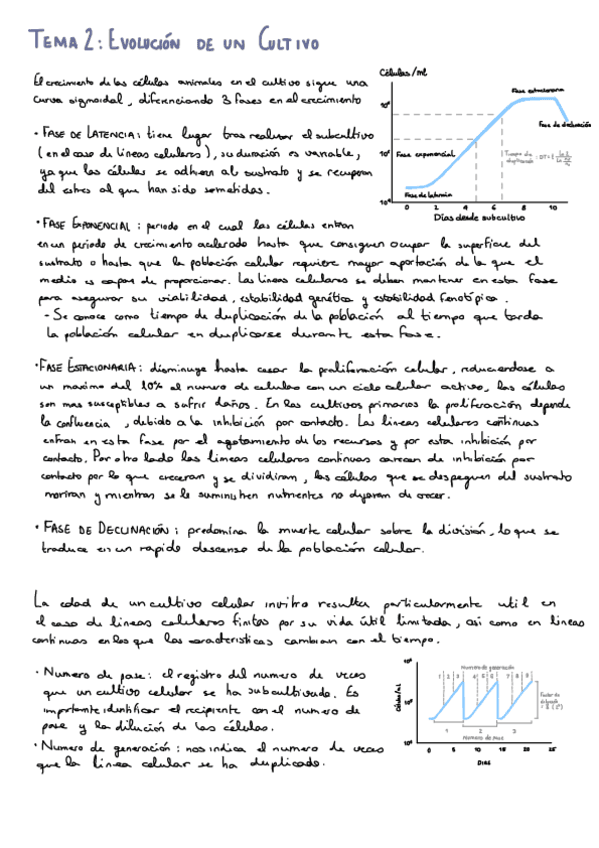 TEMA 2: EVOLUCIÓN DE UN CULTIVO
El crecimiento de las células animales en el cultivo sigue una
curva sigmoidal, diferenciando 3 fases en el crecimiento
· FASE DE LATENCIA: tiene lugar tras realizar el subcultivo
(en el caso de líneas celulares), su duración es variable,
ya que las células se adhieren al sustrato y se recuperan
del estrés al que han sido sometidas.
Células/ml
Fase estacionaria
Fase de declinación
Fase exponencial
Tiempo de duplicación
Fase de latencia
0 2 4 6 8 10
Días desde subcultivo
· FASE EXPONENCIAL: periodo en el cual las células entran
en un periodo de crecimiento acelerado hasta que consiguen ocupar la superficie del
sustrato o hasta que la población celular requiere mayor aportación de la que el
medio es capaz de proporcionar. Las líneas celulares se deben mantener en esta fase
para asegurar su viabilidad, estabilidad genética y estabilidad fenotípica.
- Se conoce como tiempo de duplicación de la población al tiempo que tarda
la población celular en duplicarse durante esta fase.
· FASE ESTACIONARIA: disminuye hasta cesar la proliferación celular, reduciendose a
un maximo del 10% el numero de celulas con un ciclo celular activo, las células
son mas susceptibles a sufrir daños. En los cultivos primarios la proliferación depende
la confluencia, debido a la inhibición por contacto. Las lineas celulares continuas
entran en esta fase por el agotamiento de los recursos y por esta inhibición por
contacto. Por otro lado las lineas celulares continuas carecen de inhibición por
contacto por lo que creceran y se dividiran, las células que se despeguen del sustrato
moriran y mientras se le suministren nutrientes no dejaran de crecer.
· FASE DE DECLINACIÓN: predomina la muerte celular sobre la división, lo que se
traduce en un rapido descenso de la población celular.
La edad de un cultivo celular invitro resulta particularmente util en
el caso de lineas celulares finitas por su vida útil limitada, asi como en lineas
continuas en los que las caracteristicas cambian con el tiempo.
· Numero de pase: el registro del numero de veces
que un cultivo celular se ha subcultivado. Es
importante identificar el recipiente con el numero de
pase y la dilución de las células.
· Numero de generación: nos indica el numero de veces
que la linea celular se ha duplicado.
Numero de generación
1 2 3 4 5 6 7 8 9
Células/mL
Factor de dilución
1 2 3
Numero de pase
0 5 10 15 20 25
DIAS